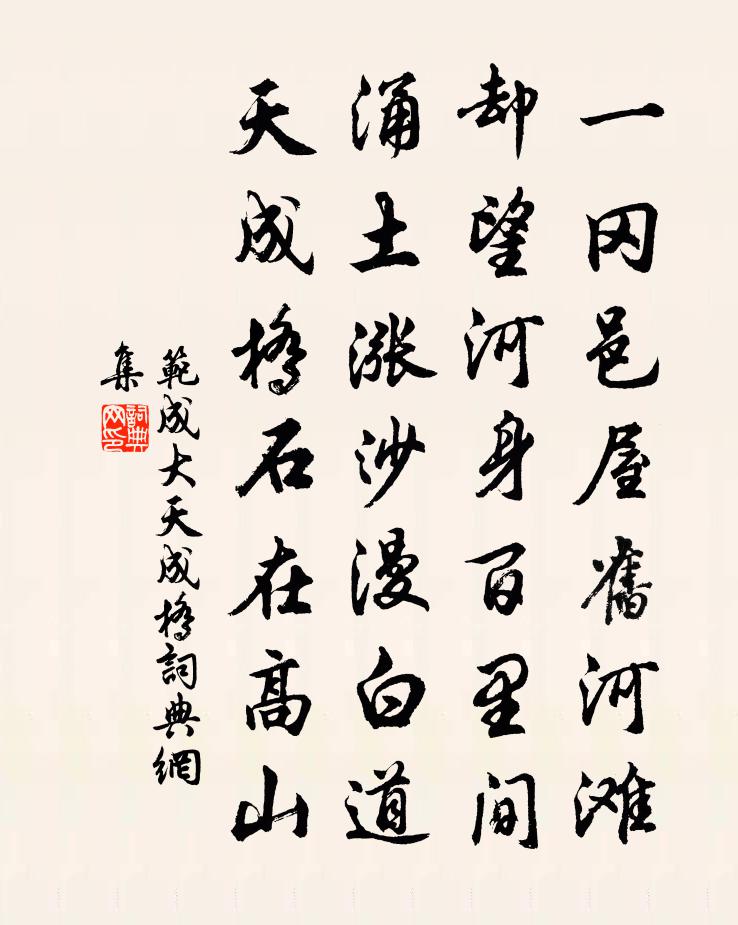 一冈邑屋舊河滩
却望河身百里间
涌土涨沙漫白道
天成橋石在高山
範成大天成橋詞典網
集
詞典
网印